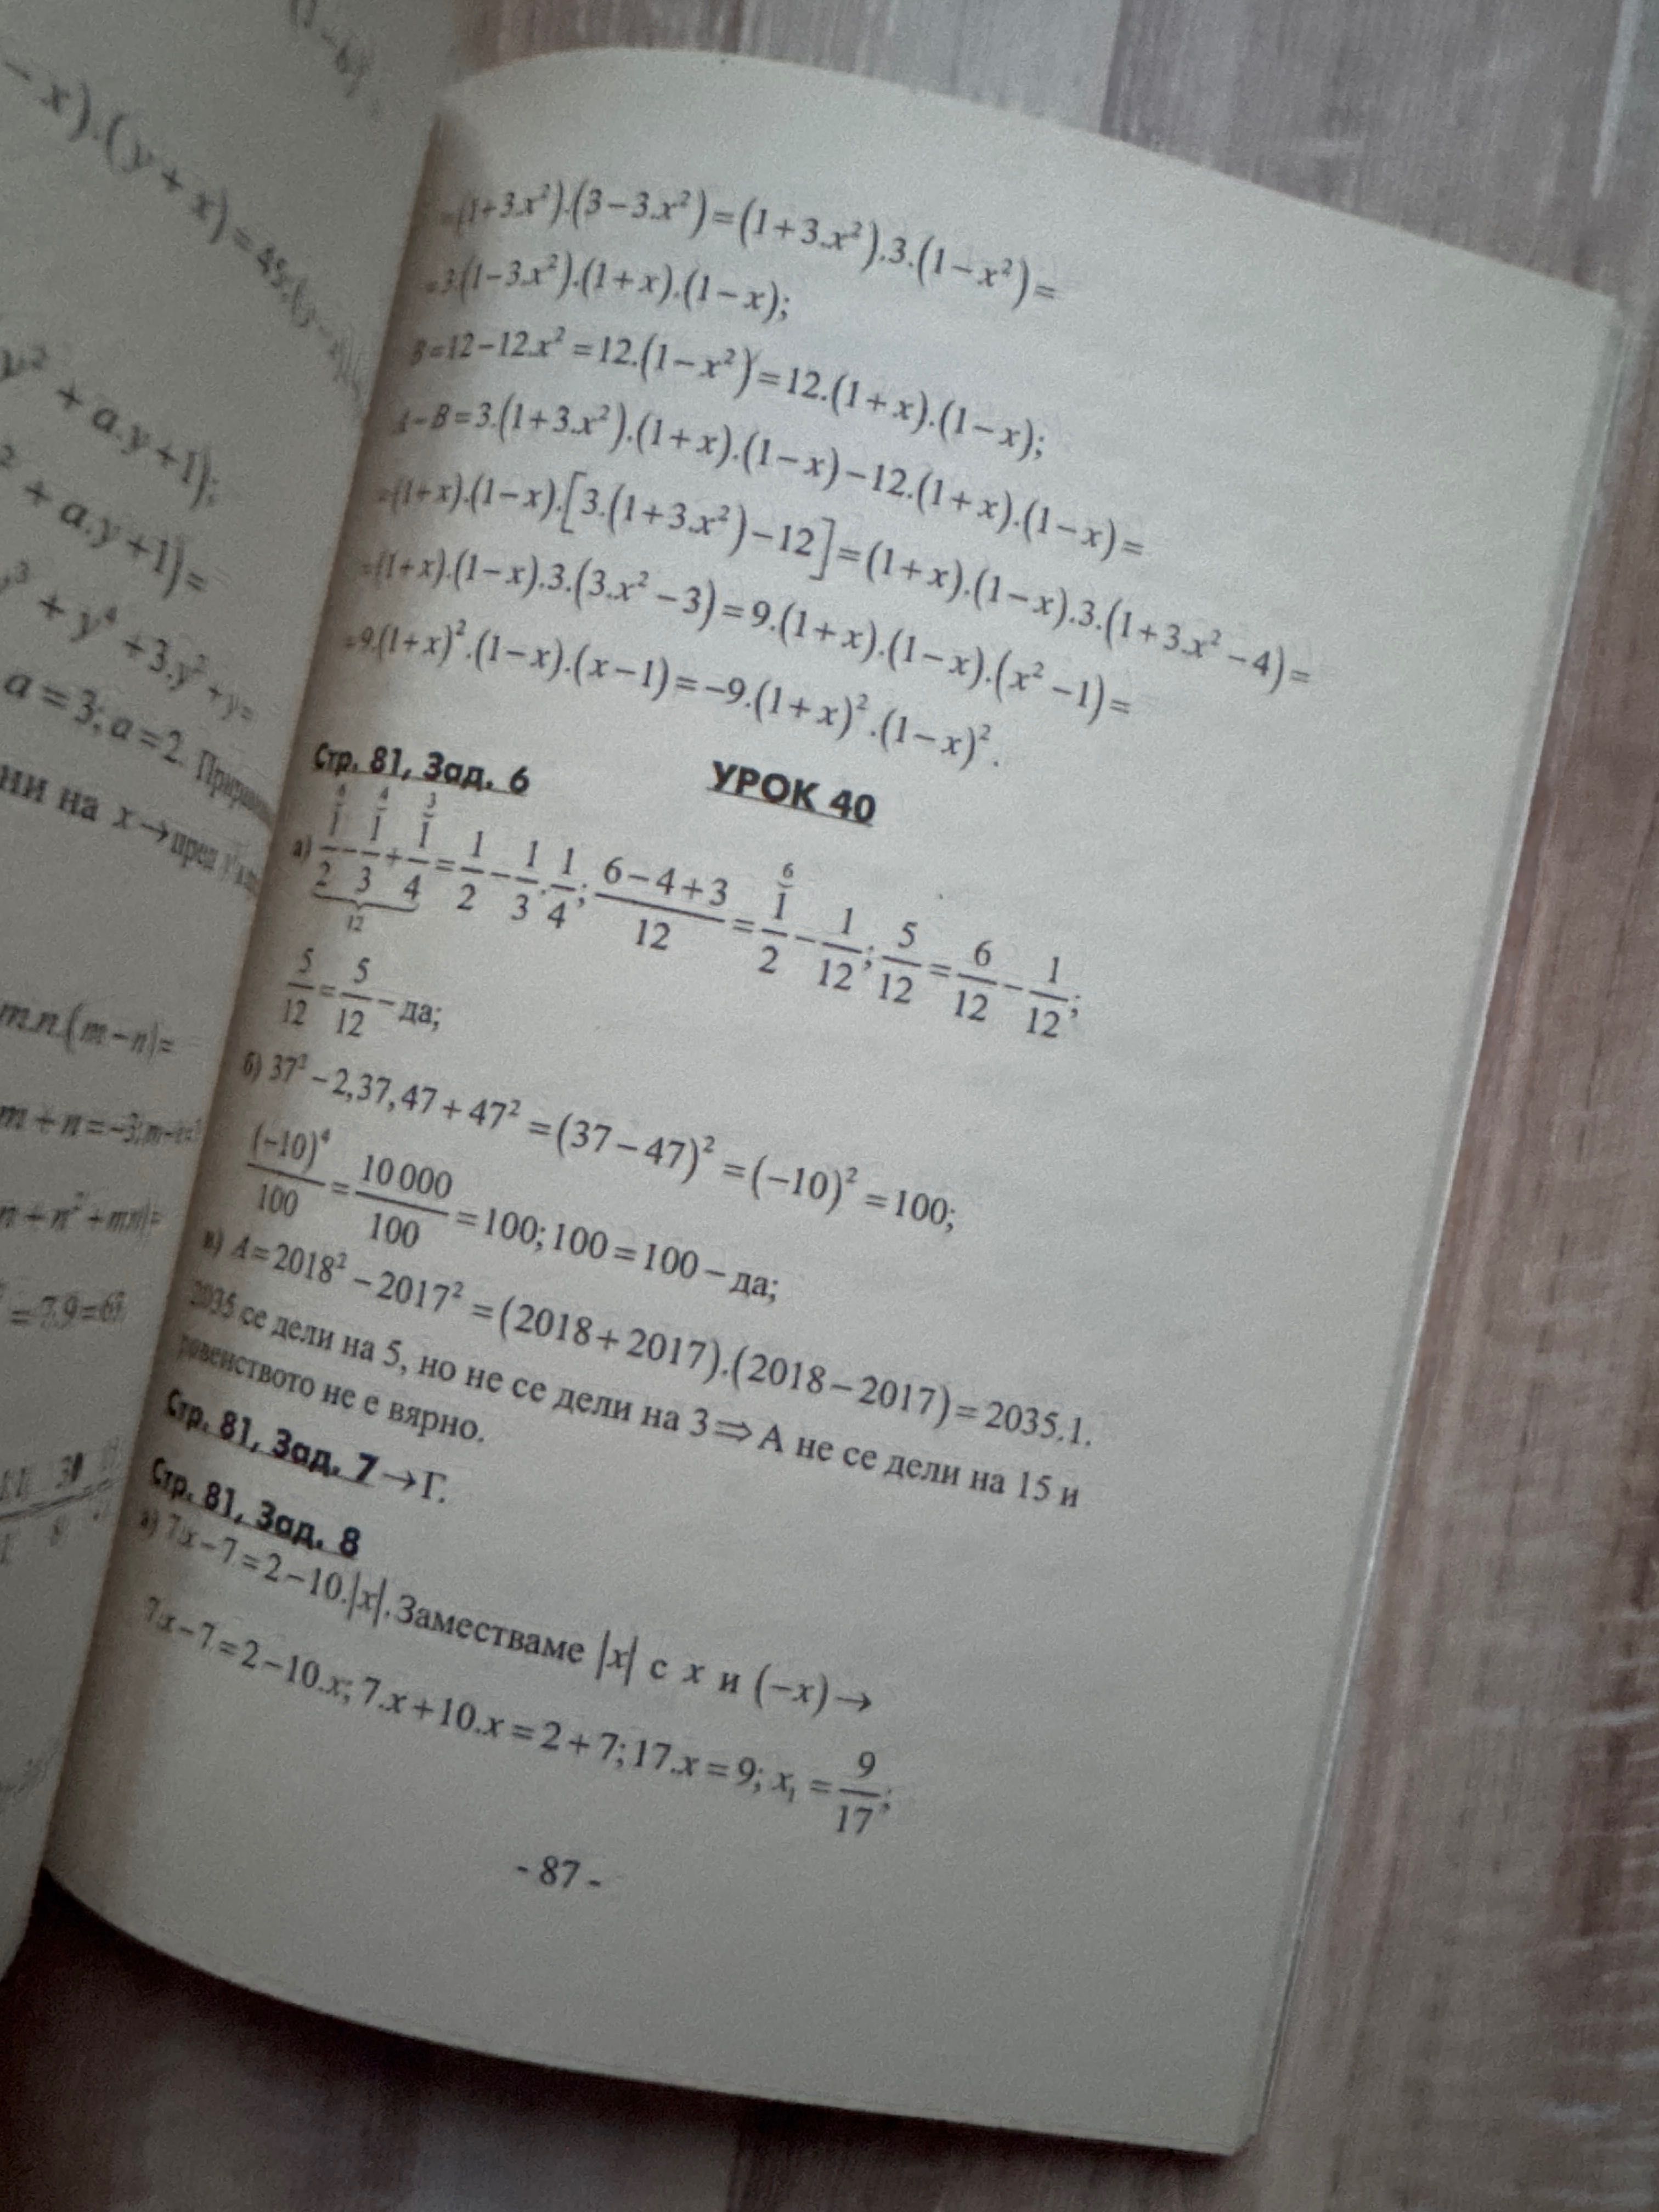 –x).(y+x)=45;(y–
y² + a.y+1);
² + a.y+1)=
³ + y⁴ +3.y²+y=
a=3; a=2.
ни на x→пред
m.n.(m–n)=
m+n=–3;
=7.9=63
=(1+3.x²).(3–3.x²)=(1+3.x²).3.(1–x²)=
=3.(1–3.x²).(1+x).(1–x);
B=12–12.x²=12.(1–x²)=12.(1+x).(1–x);
A–B=3.(1+3.x²).(1+x).(1–x)–12.(1+x).(1–x)=
=(1+x).(1–x).[3.(1+3.x²)–12]=(1+x).(1–x).3.(1+3.x²–4)=
=(1+x).(1–x).3.(3.x²–3)=9.(1+x).(1–x).(x²–1)=
=9.(1+x)².(1–x).(x–1)=–9.(1+x)².(1–x)².
УРОК 40
Стр. 81, Зад. 6
а) 1/2 – 1/3 + 1/4 = 1/2 – 1/3 . 1/4; (6–4+3)/12 = 1/2 – 1/12; 5/12 = 6/12 – 1/12;
5/12 = 5/12 – да;
б) 37²–2,37,47+47²=(37–47)²=(–10)²=100;
(–10)⁴/100 = 10 000/100 = 100; 100=100 – да;
в) A=2018²–2017²=(2018+2017).(2018–2017)=2035.1.
2035 се дели на 5, но не се дели на 3⇒А не се дели на 15 и
равенството не е вярно.
Стр. 81, Зад. 7→Г.
Стр. 81, Зад. 8
а) 7.x–7=2–10.|x|. Заместваме |x| с x и (–x)→
7.x–7=2–10.x; 7.x+10.x=2+7; 17.x=9; x₁ = 9/17;
- 87 -